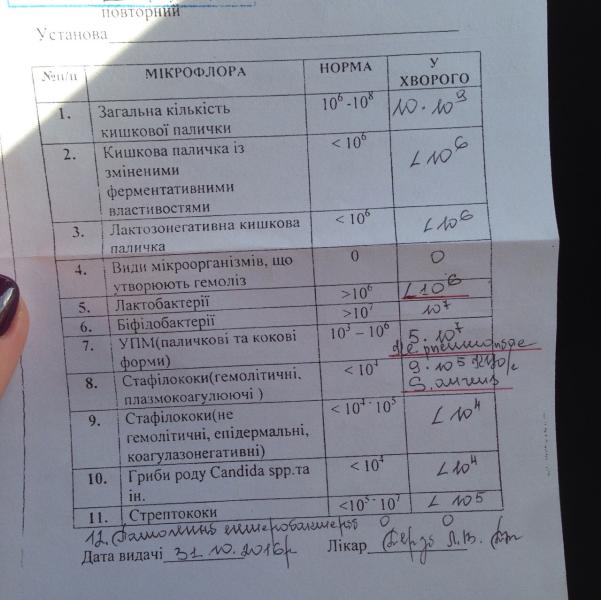 повторний
Установа
№п/п МІКРОФЛОРА НОРМА У ХВОРОГО
1. Загальна кількість кишкової палички 10⁶ -10⁸ 10·10⁹
2. Кишкова паличка із зміненими ферментативними властивостями < 10⁶ < 10⁶
3. Лактозонегативна кишкова паличка < 10⁶ < 10⁶
4. Види мікроорганізмів, що утворюють гемоліз 0 0
5. Лактобактерії >10⁶ < 10⁶
6. Біфідобактерії >10⁷ 10⁷
7. УПМ(паличкові та кокові форми) 10³ – 10⁶ 5·10⁷ pneumoniae
8. Стафілококи(гемолітичні, плазмокоагулюючі ) < 10⁴ 9·10⁵ КУО/г S. aureus
9. Стафілококи(не гемолітичні, епідермальні, коагулазонегативні) < 10⁴ - 10⁵ < 10⁴
10. Гриби роду Candida spp.та ін. < 10⁴ < 10⁴
11. Стрептококи <10⁵ - 10⁷ < 10⁵
12. 0 0
Дата видачі 31.10.2016р Лікар Л.В.